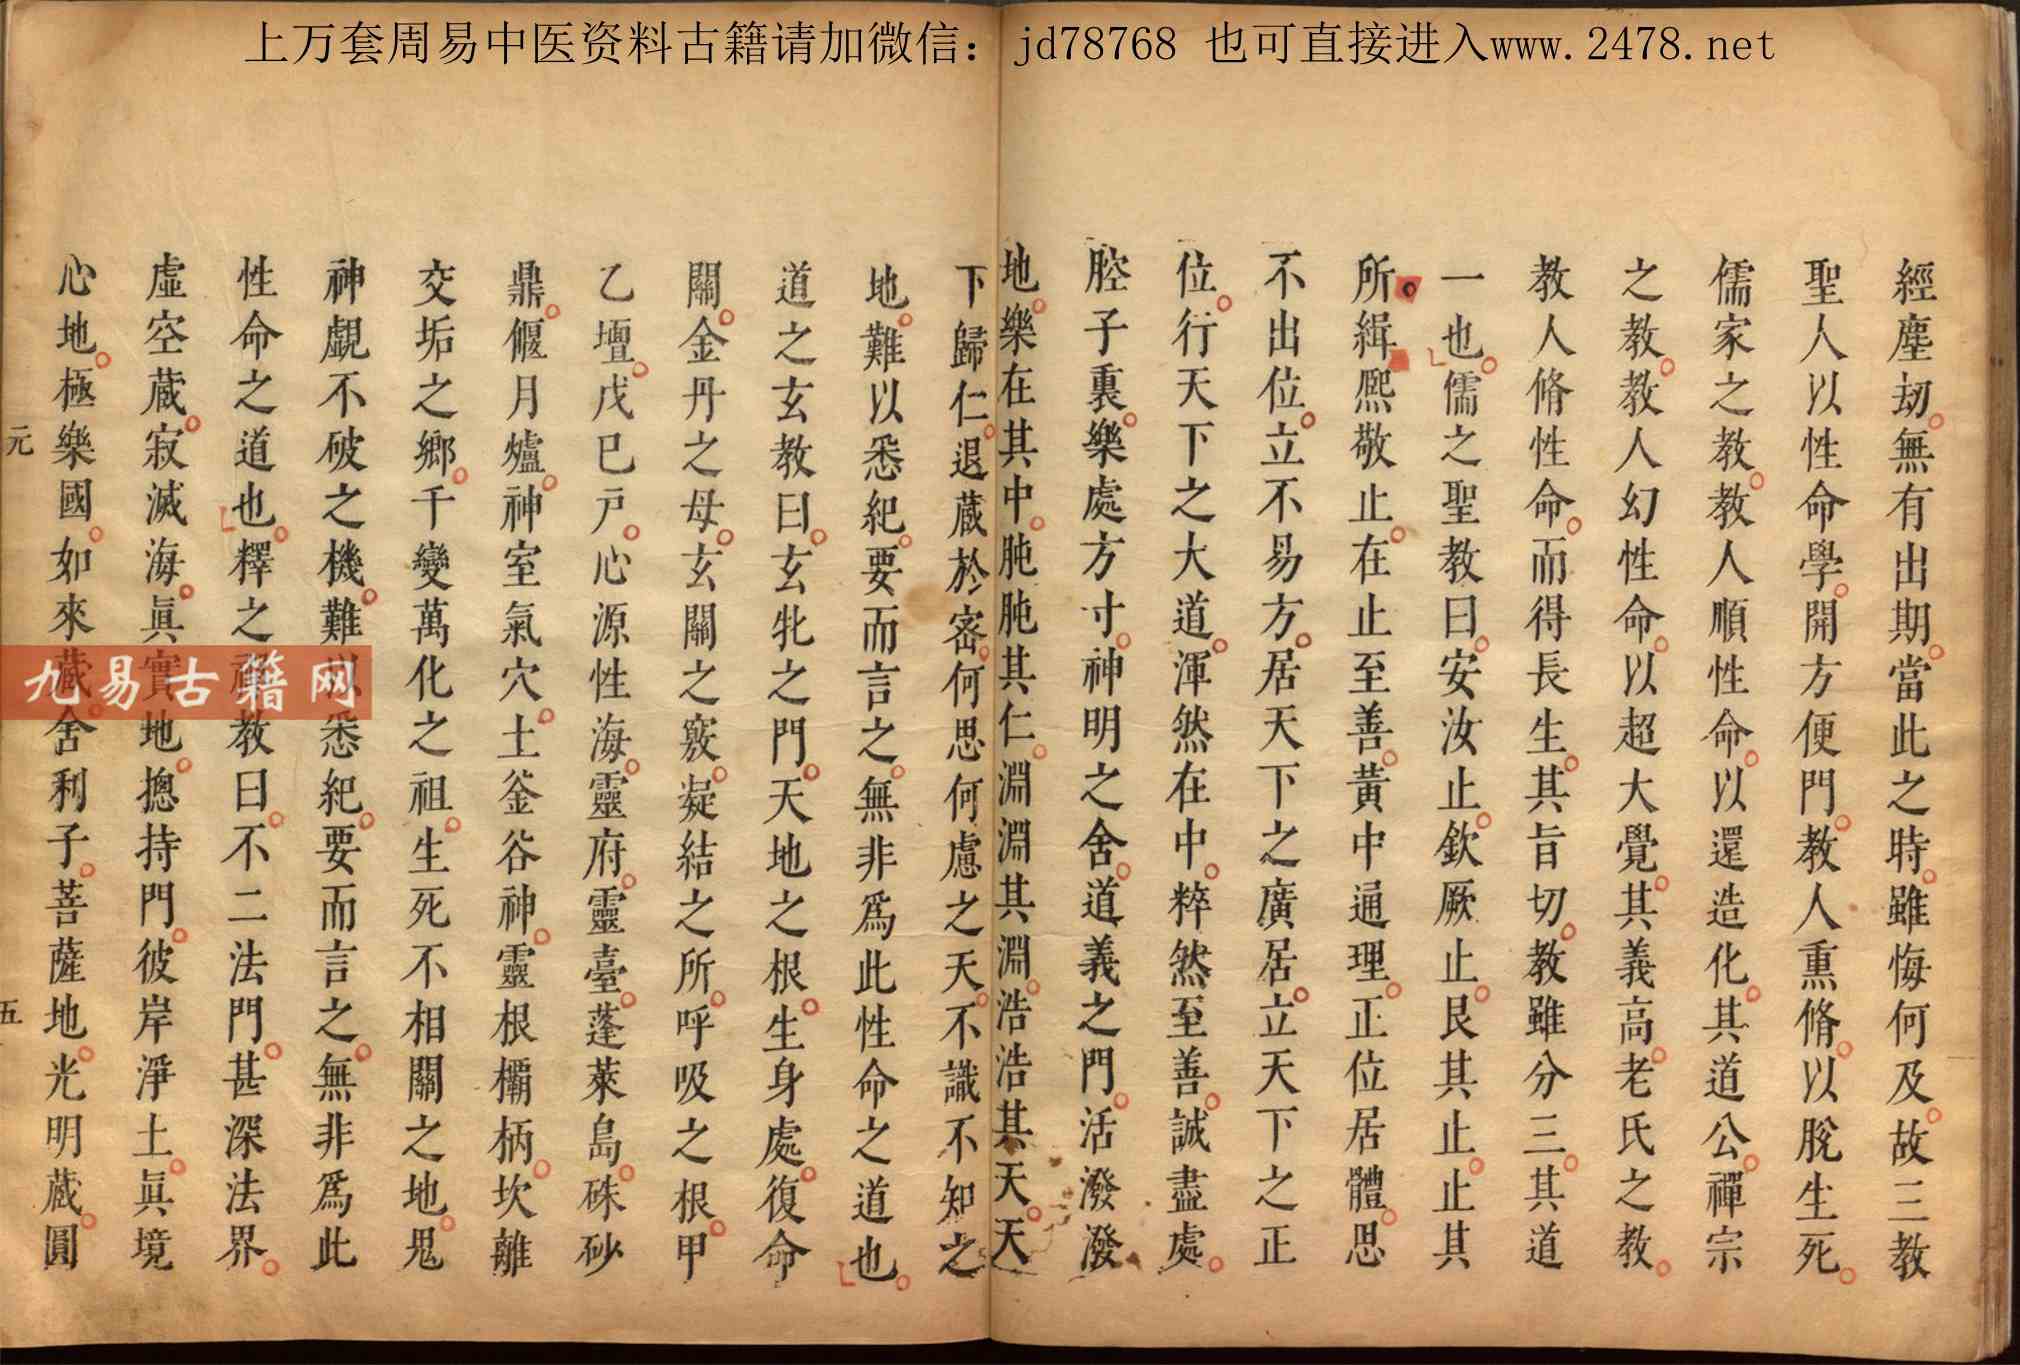 上万套周易中医资料古籍请加微信：jd78768 也可直接进入www.2478.net
經塵劫無有出期當此之時雖悔何及故三教
聖人以性命學開方便門教人熏脩以脫生死
儒家之教教人順性命以還造化其道公禪宗
之教教人幻性命以超大覺其義高老氏之教
教人脩性命而得長生其旨切教雖分三其道
一也儒之聖教曰安汝止欽厥止艮其止止其
所緝熈敬止在止至善黃中通理正位居體思
不出位立不易方居天下之廣居立天下之正
位行天下之大道渾然在中粹然至善誠盡處
腔子裏樂處方寸神明之舍道義之門活潑潑
地樂在其中肫肫其仁淵淵其淵浩浩其天天
下歸仁退藏於密何思何慮之天不識不知之
地難以悉紀要而言之無非爲此性命之道也
道之玄教曰玄牝之門天地之根生身處復命
關金丹之母玄關之竅凝結之所呼吸之根甲
乙壇戊巳戸心源性海靈府靈臺蓬萊島硃砂
鼎偃月爐神室氣穴土釜谷神靈根欛柄坎離
交垢之鄉千變萬化之祖生死不相關之地鬼
神覷不破之機難以悉紀要而言之無非爲此
性命之道也釋之禪教曰不二法門甚深法界
虛空藏寂滅海眞實地摠持門彼岸淨土眞境
心地極樂國如來藏舍利子菩薩地光明藏圓
元
五
九易古籍网